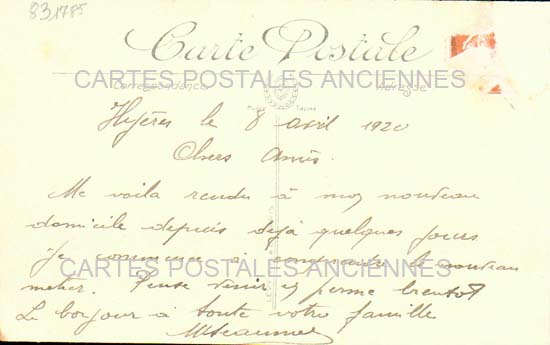 831785
Carte Postale
CARTES POSTALES ANCIENNES
Correspondance
Adresse
Hyères le 8 avril 1920
Chers Amis.
Me voila rendu à mon nouveau
domicile depuis déjà quelques jours
je commence à comprendre le nouveau
CARTES POSTALES ANCIENNES
metier. Pense venir en perme bientot
Le bonjour à toute votre famille